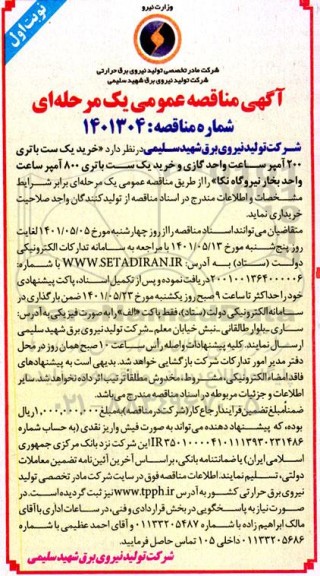 وزارت نیرو
نوبت اول
شرکت مادر تخصصی تولید نیروی برق حرارتی
شرکت تولید نیروی برق شهید سلیمی
آگهی مناقصه عمومی یک مرحله‌ای
شماره مناقصه: ۱۴۰۱۳۰۴
شرکت تولید نیروی برق شهید سلیمی در نظر دارد «خرید یک ست باتری
۲۰۰ آمپر ساعت واحد گازی و خرید یک ست باتری ۸۰۰ آمپر ساعت
واحد بخار نیروگاه نکا» را از طریق مناقصه عمومی یک مرحله‌ای برابر شرایط
مشخصات و اطلاعات مندرج در اسناد مناقصه از تولیدکنندگان واجد صلاحیت
خریداری نماید.
متقاضیان می‌توانند اسناد مناقصه را از روز چهارشنبه مورخ ۱۴۰۱/۰۵/۰۵ لغایت
روز پنج‌شنبه مورخ ۱۴۰۱/۰۵/۱۳ با مراجعه به سامانه تدارکات الکترونیکی
دولت (ستاد) به آدرس: WWW.SETADIRAN.IR با شماره:
۲۰۰۱۰۰۱۳۶۴۰۰۰۰۰۶ دریافت نموده و پس از تکمیل اسناد، پاکت پیشنهادی
خود را حداکثر تا ساعت ۹ صبح روز یکشنبه مورخ ۱۴۰۱/۰۵/۲۳ ضمن بارگذاری در
سامانه الکترونیکی دولت (ستاد)، فقط پاکت «الف» را به صورت فیزیکی به آدرس:
ساری ـ بلوار طالقانی ـ نبش خیابان معلم ـ شرکت تولید نیروی برق شهید سلیمی
ارسال نمایند. کلیه پیشنهادات واصله رأس ساعت ۱۰ صبح همان روز در محل
دفتر مدیر امور تدارکات شرکت بازگشایی خواهد شد. بدیهی است به پیشنهادهای
فاقد امضا الکترونیکی، مشروط، مخدوش مطلقا ترتیب اثر داده نخواهد شد. سایر
اطلاعات و جزئیات مربوطه در اسناد مناقصه مندرج می‌باشد.
ضمنا مبلغ تضمین فرآیند ارجاع کار (شرکت در مناقصه) به مبلغ ۱,۰۰۰,۰۰۰,۰۰۰ ریال
بوده، که پیشنهاد دهنده می‌تواند به صورت فیش واریز نقدی (به حساب شماره
IR۳۵۰۱۰۰۰۰۴۱۰۱۱۱۳۹۳۰۲۳۱۴۸۶ این شرکت نزد بانک مرکزی جمهوری
اسلامی ایران) یا ضمانتنامه بانکی، بر اساس آخرین آئین نامه تضمین معاملات
دولتی، تسلیم نمایند. اطلاعات مناقصه فوق در سایت شرکت مادر تخصصی تولید
نیروی برق حرارتی کشور به آدرس www.tpph.ir نیز ثبت گردیده است. در
صورت نیاز به پاسخگویی در بخش قراردادی و فنی، در ساعات اداری با آقای
مالک ابراهیم زاده با شماره ۰۱۱۳۳۲۰۵۴۸۷ و آقای احمد عظیمی با شماره
۰۱۱۳۳۲۰۵۶۸۶ داخلی ۱۰۵ تماس حاصل فرمایید.
شرکت تولید نیروی برق شهید سلیمی